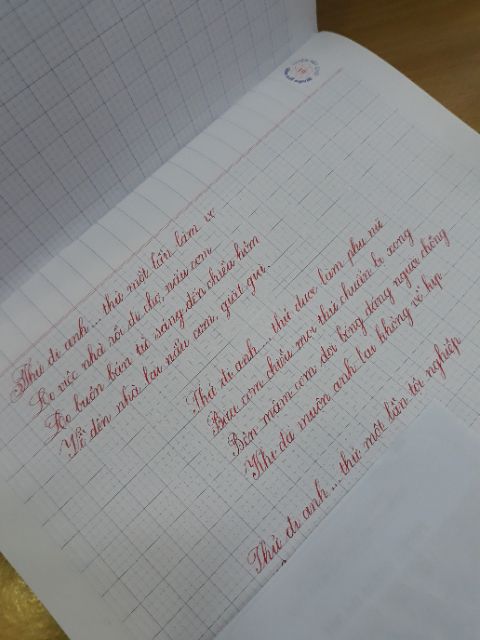 Thử đi anh... thử một lần làm vợ
Lo việc nhà rồi đi chợ, nấu cơm
Lo buôn bán từ sáng đến chiều hôm
Về đến nhà lại nấu cơm, giặt giũ.
Thử đi anh... thử được làm phụ nữ
Bữa cơm chiều mới thử chuẩn bị xong
Bên mâm cơm đợi bóng dáng người chồng
Khi đã muộn anh lại không về kịp
Thử đi anh... thử một lần tội nghiệp